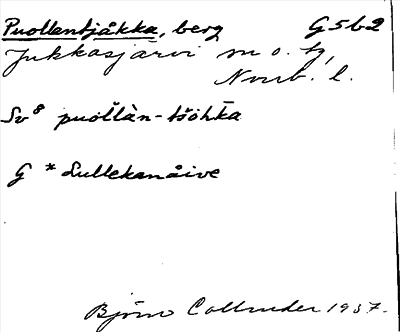 Puollentjåkka, berg G5b2
Jukkasjärvi m o. tg,
Norrb. l.
Sv⁸ puoĺ̄làn-tšòhk̄a
G * Lullekanåive
Björn Collinder 1937.